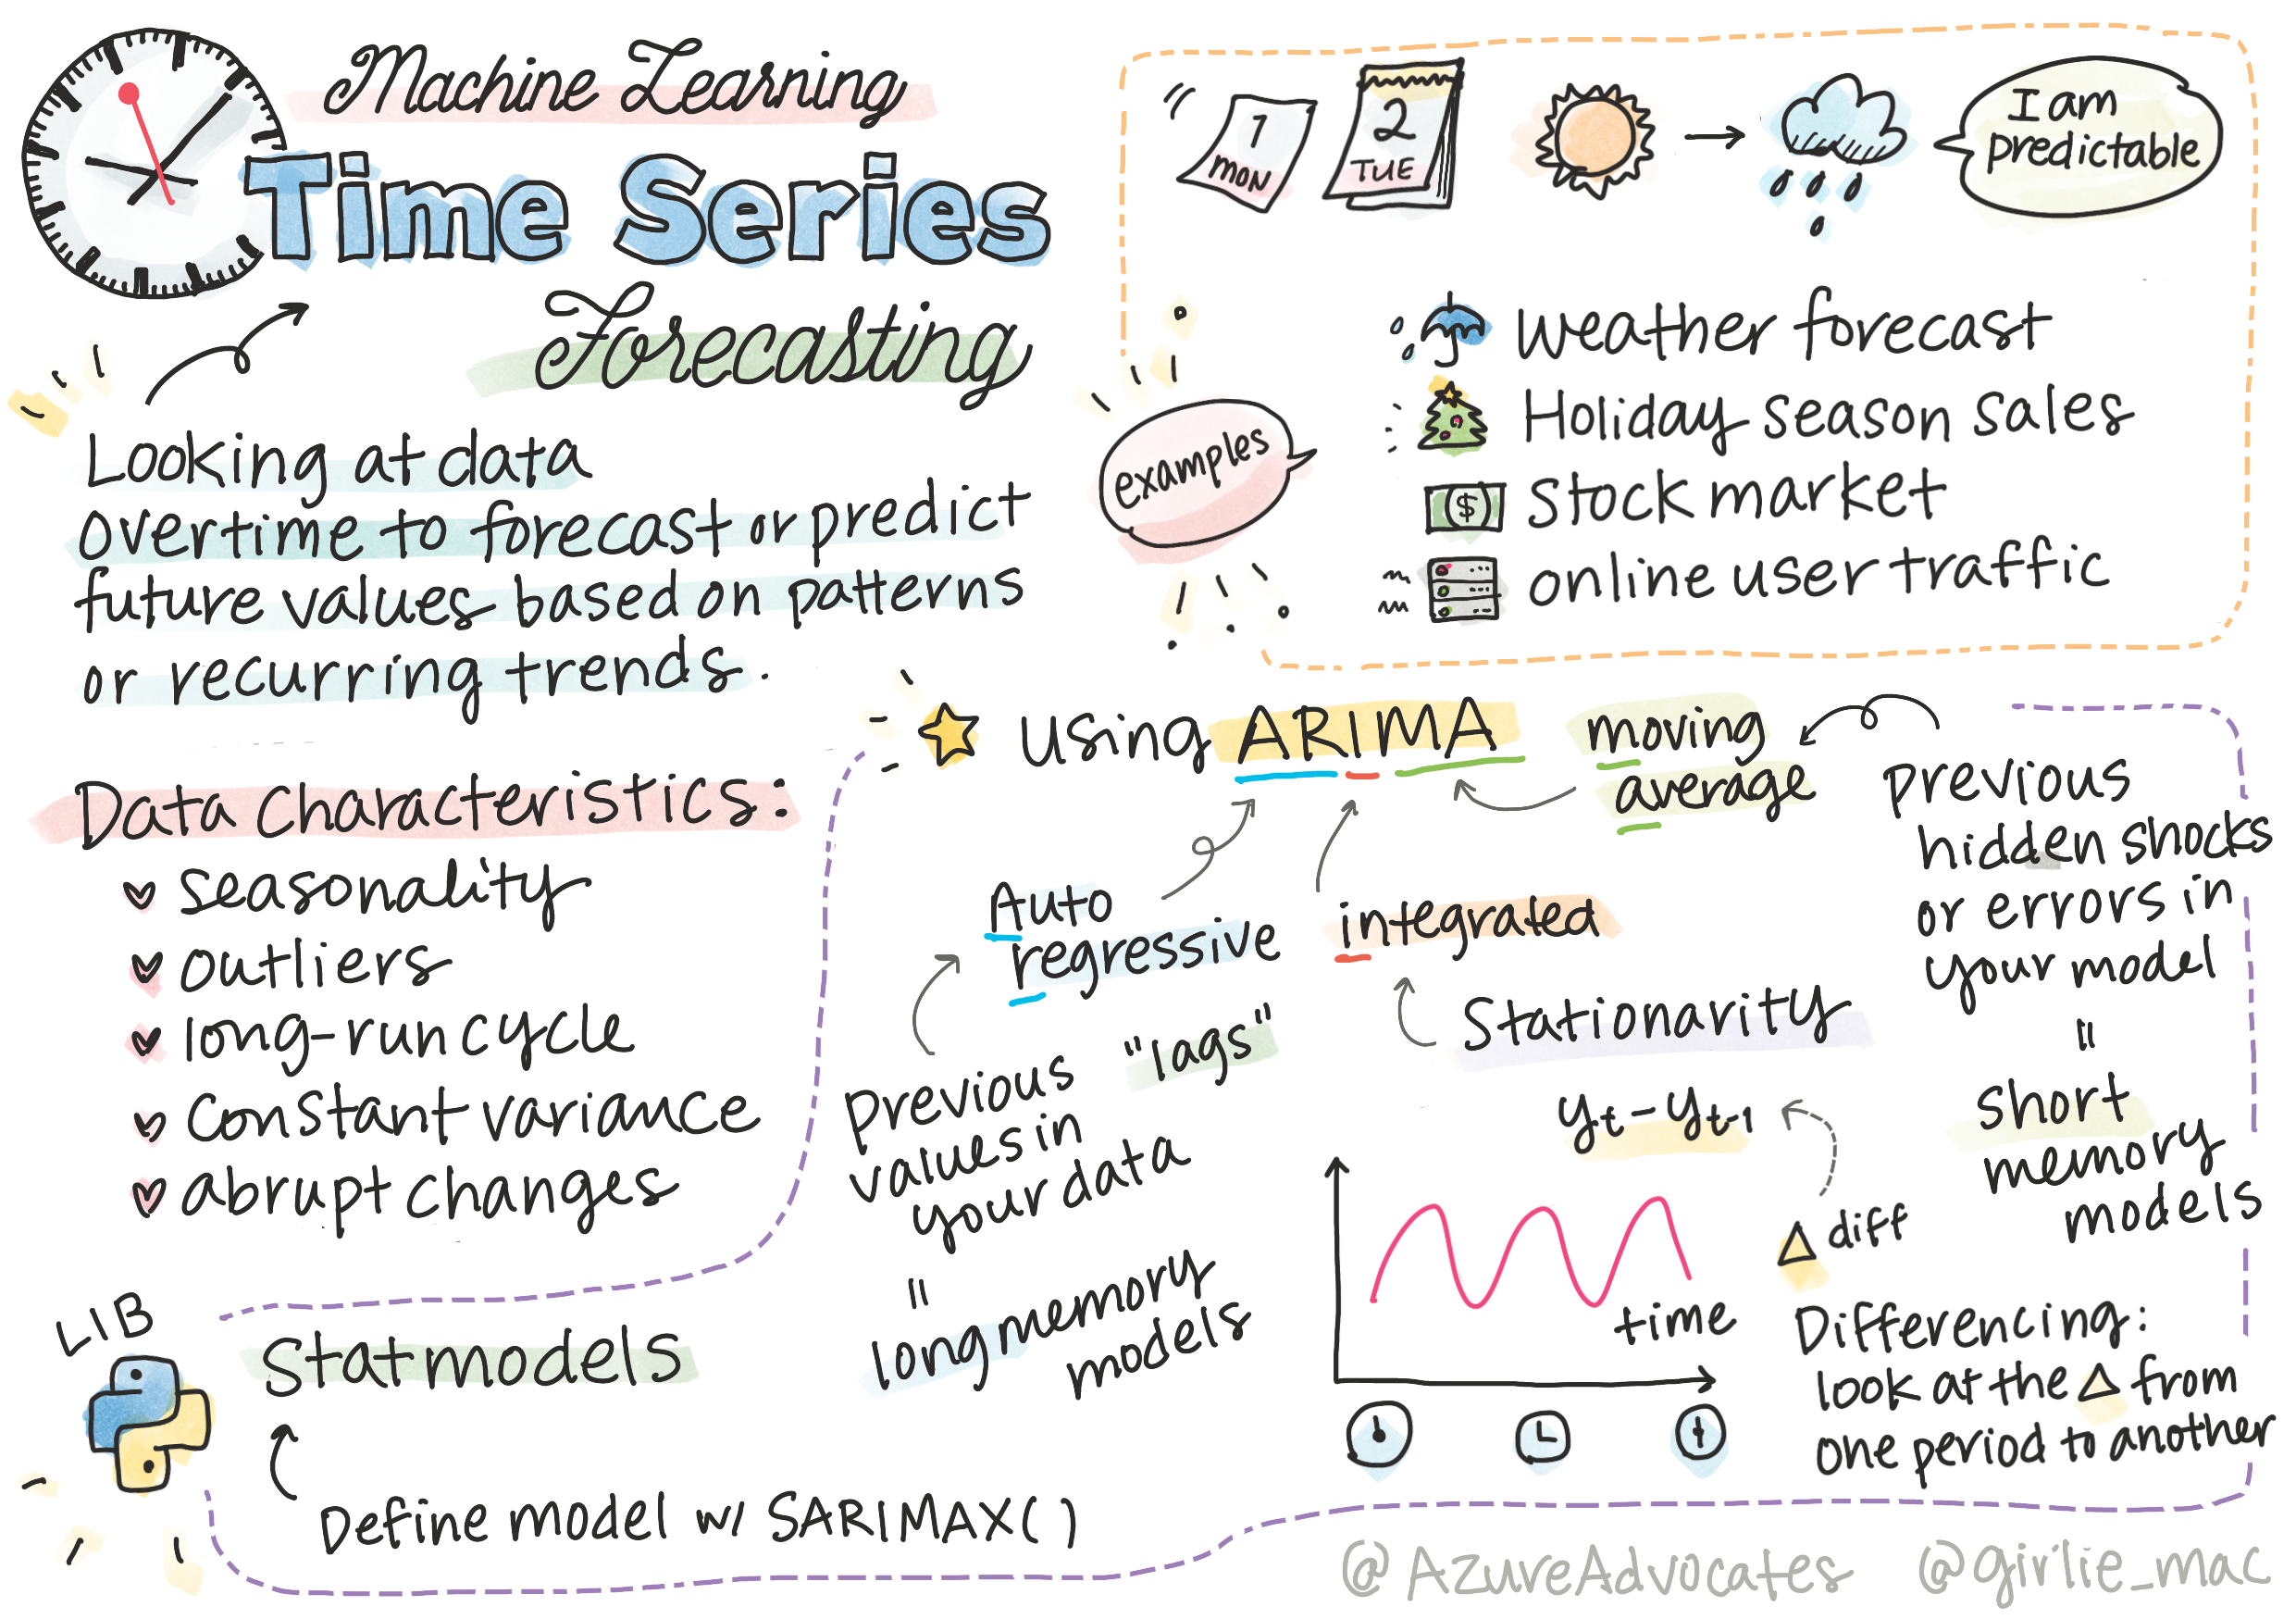 Machine Learning
Time Series
Forecasting
Looking at data
overtime to forecast or predict
future values based on patterns
or recurring trends.
1
MON
2
TUE
I am
predictable
examples
weather forecast
Holiday season sales
$
stock market
online user traffic
Data Characteristics:
seasonality
outliers
long-run cycle
constant variance
abrupt changes
using ARIMA
moving
average
previous
hidden shocks
or errors in
your model
=
short
memory
models
Auto
regressive
"lags"
previous
values in
your data
=
long memory
models
integrated
Stationarity
yt - yt-1
△ diff
time
Differencing:
look at the △ from
one period to another
LIB
Statmodels
Define model w/ SARIMAX()
@AzureAdvocates @girlie_mac